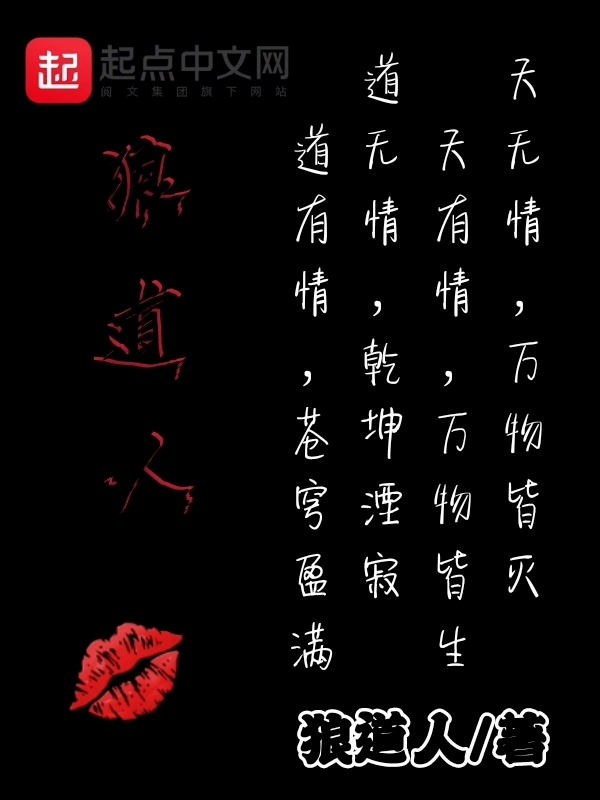 起 起点中文网
阅文集团旗下网站
天无情，万物皆灭
天有情，万物皆生
道无情，乾坤湮寂
道有情，苍穹盈满
狼道人
狼道人/著